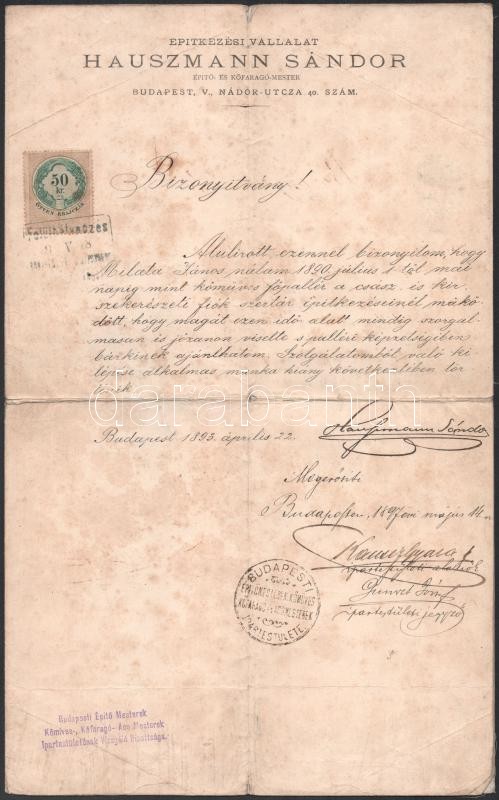 EPITKEZÉSI VÁLLALAT
HAUSZMANN SÁNDOR
ÉPITŐ- ÉS KŐFARAGÓ-MESTER
BUDAPEST, V., NÁDOR-UTCZA 40. SZÁM.
50
kr.
ÖTVEN KRAJCZÁR
Bizonyitvány!
Alulirott, ezennel bizonyitom, hogy
Milata János nálam 1890. július 1 től mai
napig mint kőműves főpallér a csász. és kir.
szekerészeti fiók szertár épitkezéseinél műkö-
dött, hogy magát ezen idő alatt mindig szorgal-
masan és józanon viselte s palléri képzelségében
bárkinek ajánlhatom. Szolgálatomból való ki
lépése alkalmas munka hiány következtében tör
tének
darabanth
Budapest 1893. április 22.
Hauszmann Sándor
Megerősiti
Budapesten, 1897 évi május 14
ipartestületi jegyző
BUDAPESTI
ÉPITŐMESTEREK, KŐMIVES
KŐFARAGÓ ÉS ÁCSMESTEREK
IPARTESTÜLETE
Budapesti Épitő Mesterek
Kőmives-, Kőfaragó- Ács Mesterek
Ipartestületének Vizsgáló Bizottsága.